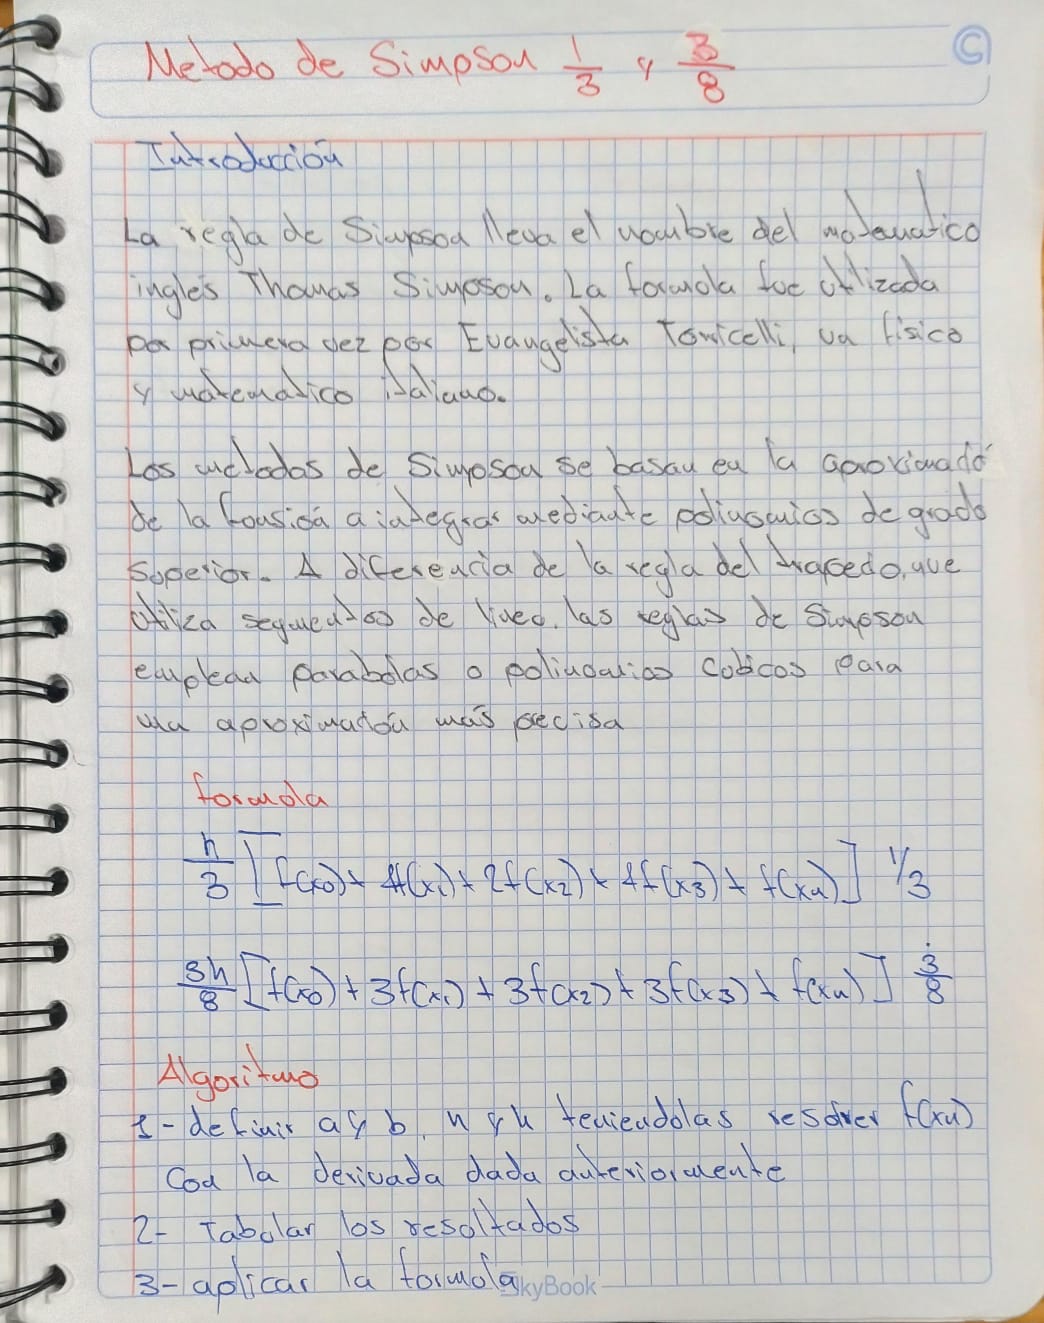 Metodo de Simpson 1/3 y 3/8
Introducción
La regla de Simpson lleva el nombre del matematico
inglés Thomas Simpson. La formula fue utilizada
por primera vez por Evangelista Torricelli, un físico
y matematico italiano.
Los metodos de Simpson se basan en la aproximado
de la funsión a integrar mediante polinomios de grado
Superior. A diferencia de la regla del trapecio, que
utiliza segmentos de linea, las reglas de Simpson
emplean parabolas o polinomios cubicos para
una aproximación más precisa
formula
h/3 [f(x0) + 4f(x1) + 2f(x2) + 4f(x3) + f(xn)] 1/3
3h/8 [f(x0) + 3f(x1) + 3f(x2) + 3f(x3) + f(xn)] 3/8
Algoritmo
1- definir a y b, n y h teniendolas resolver f(xn)
Con la derivada dada anteriormente
2- Tabular los resultados
3- aplicar la formula
SkyBook